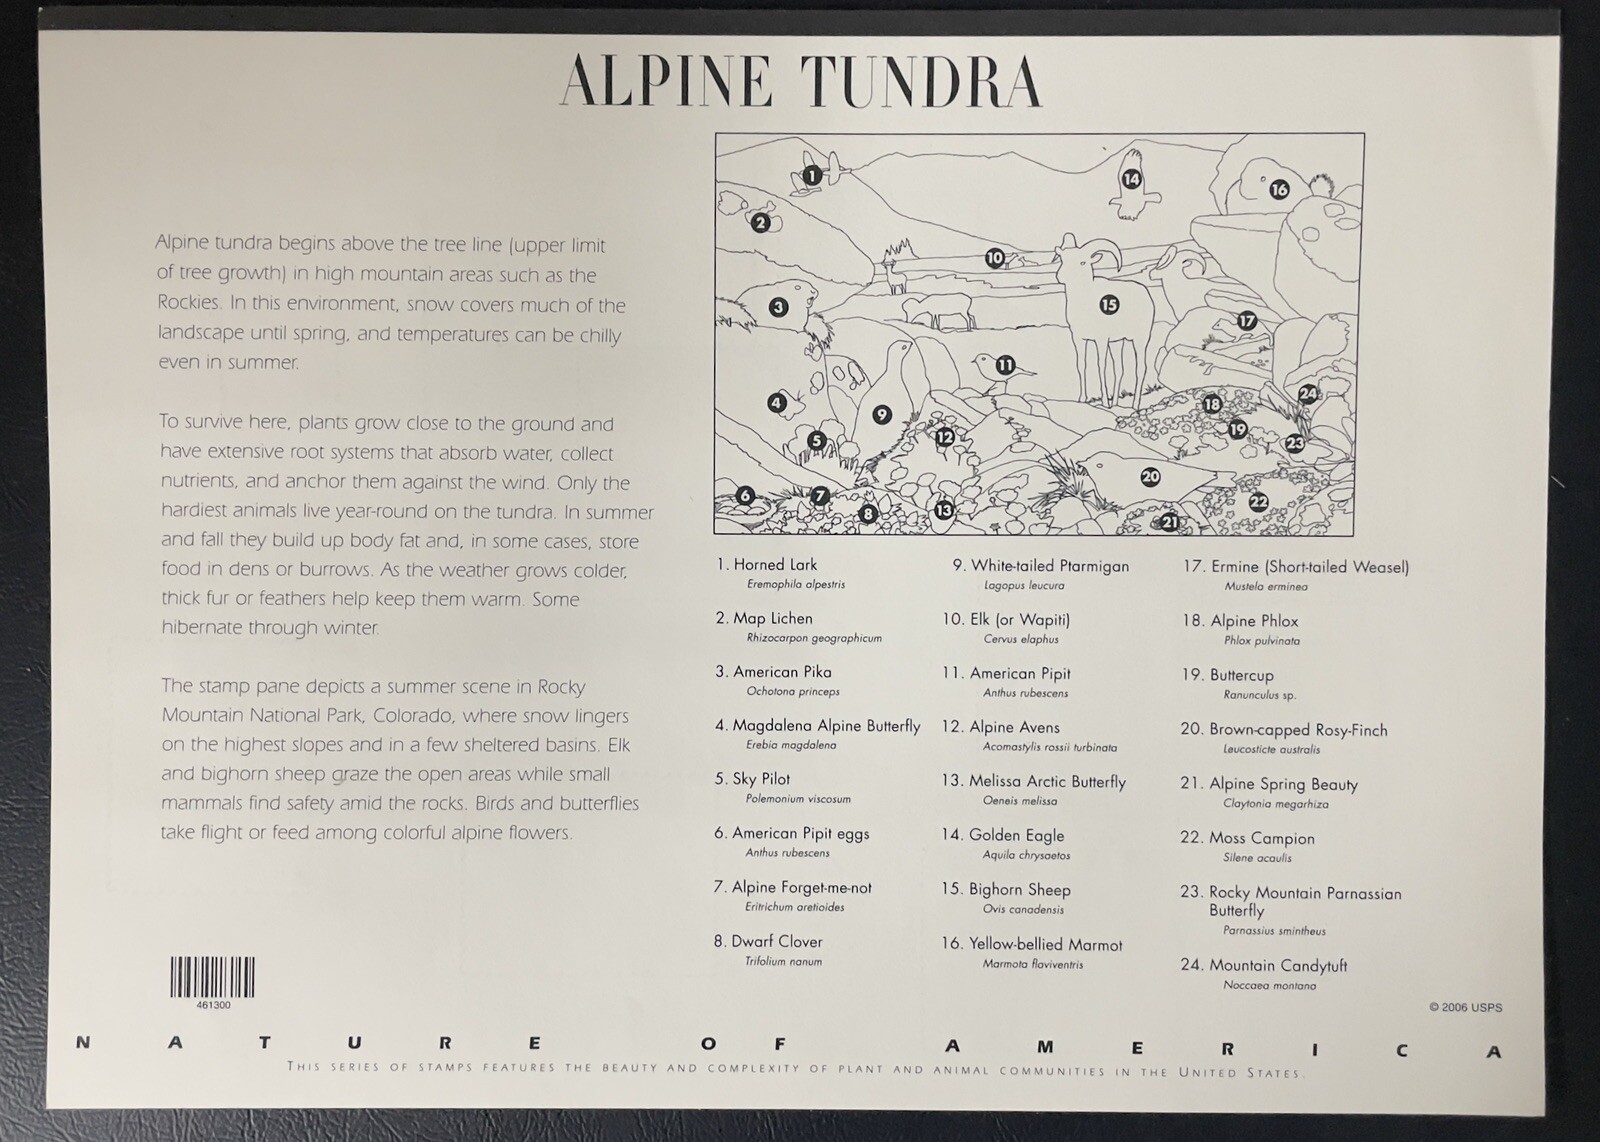 ALPINE TUNDRA
Alpine tundra begins above the tree line (upper limit
of tree growth) in high mountain areas such as the
Rockies. In this environment, snow covers much of the
landscape until spring, and temperatures can be chilly
even in summer.
To survive here, plants grow close to the ground and
have extensive root systems that absorb water, collect
nutrients, and anchor them against the wind. Only the
hardiest animals live year-round on the tundra. In summer
and fall they build up body fat and, in some cases, store
food in dens or burrows. As the weather grows colder,
thick fur or feathers help keep them warm. Some
hibernate through winter.
The stamp pane depicts a summer scene in Rocky
Mountain National Park, Colorado, where snow lingers
on the highest slopes and in a few sheltered basins. Elk
and bighorn sheep graze the open areas while small
mammals find safety amid the rocks. Birds and butterflies
take flight or feed among colorful alpine flowers.
1
14
16
2
10
3
15
17
11
4
9
18
24
5
12
19
23
6
7
8
13
20
21
22
1. Horned Lark
Eremophila alpestris
2. Map Lichen
Rhizocarpon geographicum
3. American Pika
Ochotona princeps
4. Magdalena Alpine Butterfly
Erebia magdalena
5. Sky Pilot
Polemonium viscosum
6. American Pipit eggs
Anthus rubescens
7. Alpine Forget-me-not
Eritrichum aretioides
8. Dwarf Clover
Trifolium nanum
9. White-tailed Ptarmigan
Lagopus leucura
10. Elk (or Wapiti)
Cervus elaphus
11. American Pipit
Anthus rubescens
12. Alpine Avens
Acomastylis rossii turbinata
13. Melissa Arctic Butterfly
Oeneis melissa
14. Golden Eagle
Aquila chrysaetos
15. Bighorn Sheep
Ovis canadensis
16. Yellow-bellied Marmot
Marmota flaviventris
17. Ermine (Short-tailed Weasel)
Mustela erminea
18. Alpine Phlox
Phlox pulvinata
19. Buttercup
Ranunculus sp.
20. Brown-capped Rosy-Finch
Leucosticte australis
21. Alpine Spring Beauty
Claytonia megarhiza
22. Moss Campion
Silene acaulis
23. Rocky Mountain Parnassian
Butterfly
Parnassius smintheus
24. Mountain Candytuft
Noccaea montana
461300
© 2006 USPS
NATURE OF AMERICA
THIS SERIES OF STAMPS FEATURES THE BEAUTY AND COMPLEXITY OF PLANT AND ANIMAL COMMUNITIES IN THE UNITED STATES.